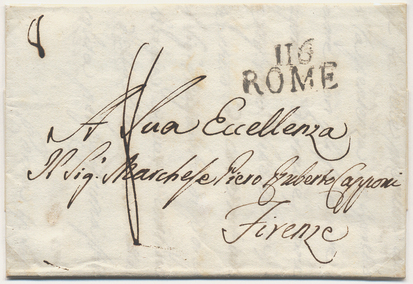 8
116
ROME
A Sua Eccellenza
Il Sig.r Marchese Piero Roberto Capponi
Firenze